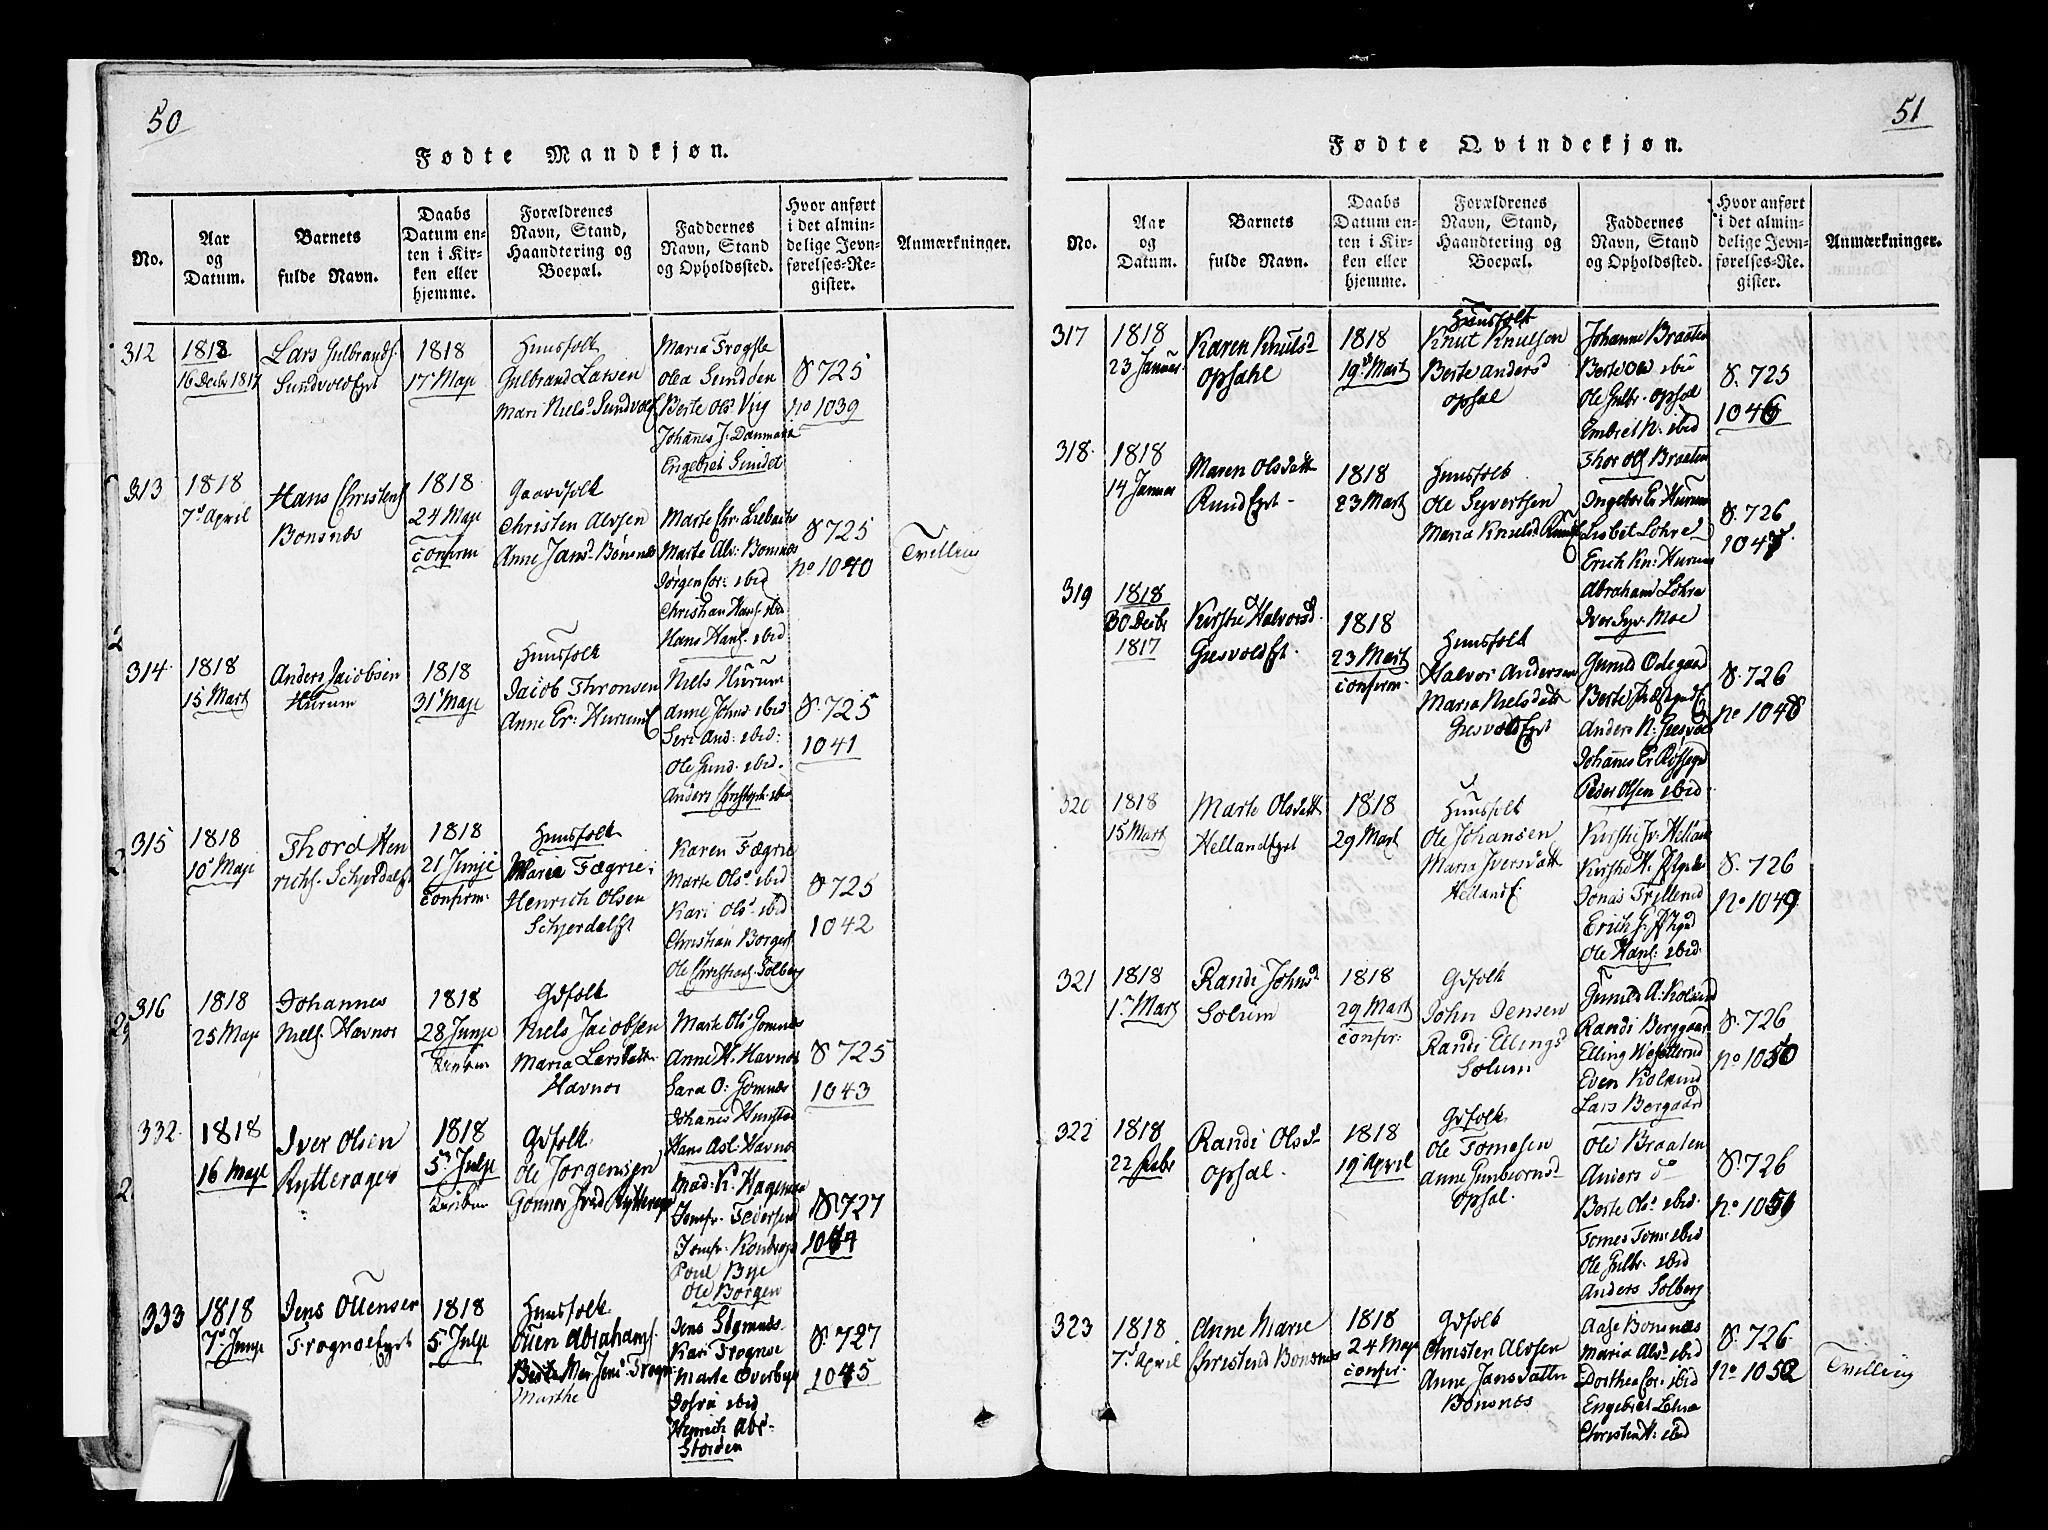 50
Fødte Mandkjøn.
No.
Aar
og
Datum.
Barnets
fulde Navn.
Daabs
Datum en-
ten i Kir-
ken eller
hjemme.
Forældrenes
Navn, Stand,
Haandtering og
Boepæl.
Faddernes
Navn, Stand
og Opholdssted.
Hvor anført
i det almin-
delige Jevn-
førelses-Re-
gister.
Anmærkninger.
312
1818
16 Decbr 1817
Lars Gulbrands.
Sundvold Eyt
1818
17 Maje
Huusfolk
Gulbrand Larsen
Mari Niels. Sundvol
Maria Frogsle
Olea Sundøen
Berte Ols. Viig
Johanes J. Danmark
Engebret Sundet
S 725
No 1039
313
1818
7 April
Hans Christens
Bonsnæs
1818
24 Maje
confirm
Gaardfolk
Christen Alvsen
Anne Jans. Bonsnæs
Marte Chr. Liebach
Marte Alv: Bonsnæs
Jørgen Cor: ibid
Christian Hans ibid
Hans Hans. ibid:
S 725
No 1040
Tvilling
314.
1818
15 Mart
Anders Jacobsen
Hurum
1818
31 Maje
Huusfolk
Jacob Thronsen
Anne Er: Hurum
Niels Hurum
Anne Johns. ibid
Seri And: ibid:
Ole Gund. ibid.
Anders Christoph. ibid
S. 725
1041
315
1818
10 Maje
Thord Hen
richs. Schjerdal
1818
21 Junje
confirm:
Huusfolk
Maria Fægrie;
Henrich Olsen
Schjerdal
Karen Fægrie
Marte Ols. ibid
Kari Ols. ibid
Christian Borger
Ole Christians. Solberg
S 725
1042
316
1818
25 Maje
Johannes
Niels. Havnor
1818
28 Junje
Gdfolk
Niels Jacobsen
Maria Larsdatt
Havnor
Marte Ols. Gomnæs
Anne H. Havnor
Sara O: Gomnæs
Johannes
Hans Asl. Havnor
S 725
1043
332.
1818
16 Maje
Iver Olsen
Rytterager
1818
5 Julje
Gdfolk.
Ole Jørgensen
Gonnor
Mad. K. Hagemæ
Jomfr. Federsen
Jomfr. Konberg
Poul Bye
Ole Borgen
S. 727
1044
333
1818
7 Junje
Jens Ottensen
Frognøe Eyt
1818
5 Julje
Huusfolk.
Otten Abrahams.
Berte Mar Jens. Frogn
Marthe
Jens
Kari Frognøe
Marte Overbye
Sofva ibid
Henrich Abr.
Storøen
S. 727
1045
51
Fødte Qvindekjøn.
No.
Aar
og
Datum.
Barnets
fulde Navn.
Daabs
Datum en-
ten i Kir-
ken eller
hjemme.
Forældrenes
Navn, Stand,
Haandtering og
Boepæl.
Faddernes
Navn, Stand
og Opholdssted.
Hvor anført
i det almin-
delige Jevn-
førelses-Re-
gister.
Anmærkninger.
317
1818
23 Januar
Karen Knutsd
Opsahl
1818
19 Mart
Huusfolk
Knut Knutson
Berte Andersd
Opsal
Johanne Braaten
Berte Old ibid
Ole Gulbr. Opsal
Embret N. ibid
Thor Ols Braaten
S. 725
1046
318.
1818
14 Januar
Maren Olsdatt
Rund Eyt
1818
23 Mart
Huusfolk
Ole Syvertsen
Maria Knuts. Rund
Ingebor Er. Hurum
Lisbet Løhre
Erich Kn: Hurum
Abraham Løhre
Iver Syv. Moe
S. 726
1047.
319
1818
30 Decbr
1817
Kirstie Halvorsd.
Giesvold Et.
1818
23 Mart
confirm.
Huusfolk
Halvor Andersen
Maria Nielsdatt
Giesvold Eyt
Gunild Odegaard
Berte
Anders N: Giesvold
Johanes Er. Røssegn
Peder Olsen ibid.
S. 726
No 1048
320
1818
15 Mart
Marte Olsdatt
Helland Eyt
1818
29 Mart
Huusfolk
Ole Johansen
Maria Iversdatt
Helland E.
Kirstie Iv. Hellan
Kirstie H.
Jonas Tryllerud
Erich G.
Ole Hans: ibid.
S. 726
No 1049
321
1818
1 Mart
Randi Johnsd
Solum
1818
29 Mart
confir:
Gdfolk
John Jensen
Randi Ellingsd
Solum
Gunild A. Kolsrud
Randi Berggaar
Elling
Even Kolsrud
Lars Borgaard
S. 726
No 1050
322
1818
22 Febr
Randi Olsd
Opsal.
1818
19 April
Gdfolk
Ole Tomesen
Anne Gunbiornsd
Opsal.
Oli Braaten
Anders do
Berte Ols. ibid
Tomes Toms. ibid
Ole Gulbr. ibid
Anders Solberg
S. 726
No 1051
323
1818
7 April
Anne Marie
Christensd Bonsnæs
1818
24 Maje
confir:
Gdfolk
Christen Alvsen
Anne Jansdatter
Bonsnæs
Aase Bonsnæs
Maria Alvs. ibid
Dorthea Cor. ibid
Engebret Lehra
Christen H. ibid
S. 726.
No. 1052
Tvilling